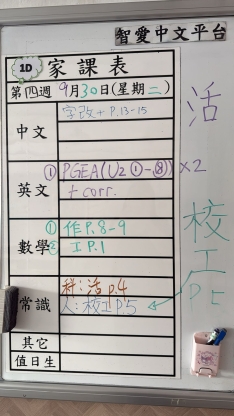 智愛中文平台
1D 家課表
第四週 9月30日(星期二)
中文 字改+P.13-15
英文 ① PGEA(U2 ①-⑧)×2
+ corr.
數學 ① 作P.8-9
② 工P.1
常識 科:活 p.4
人:校工P.5
其它
值日生
活
校工
P.5